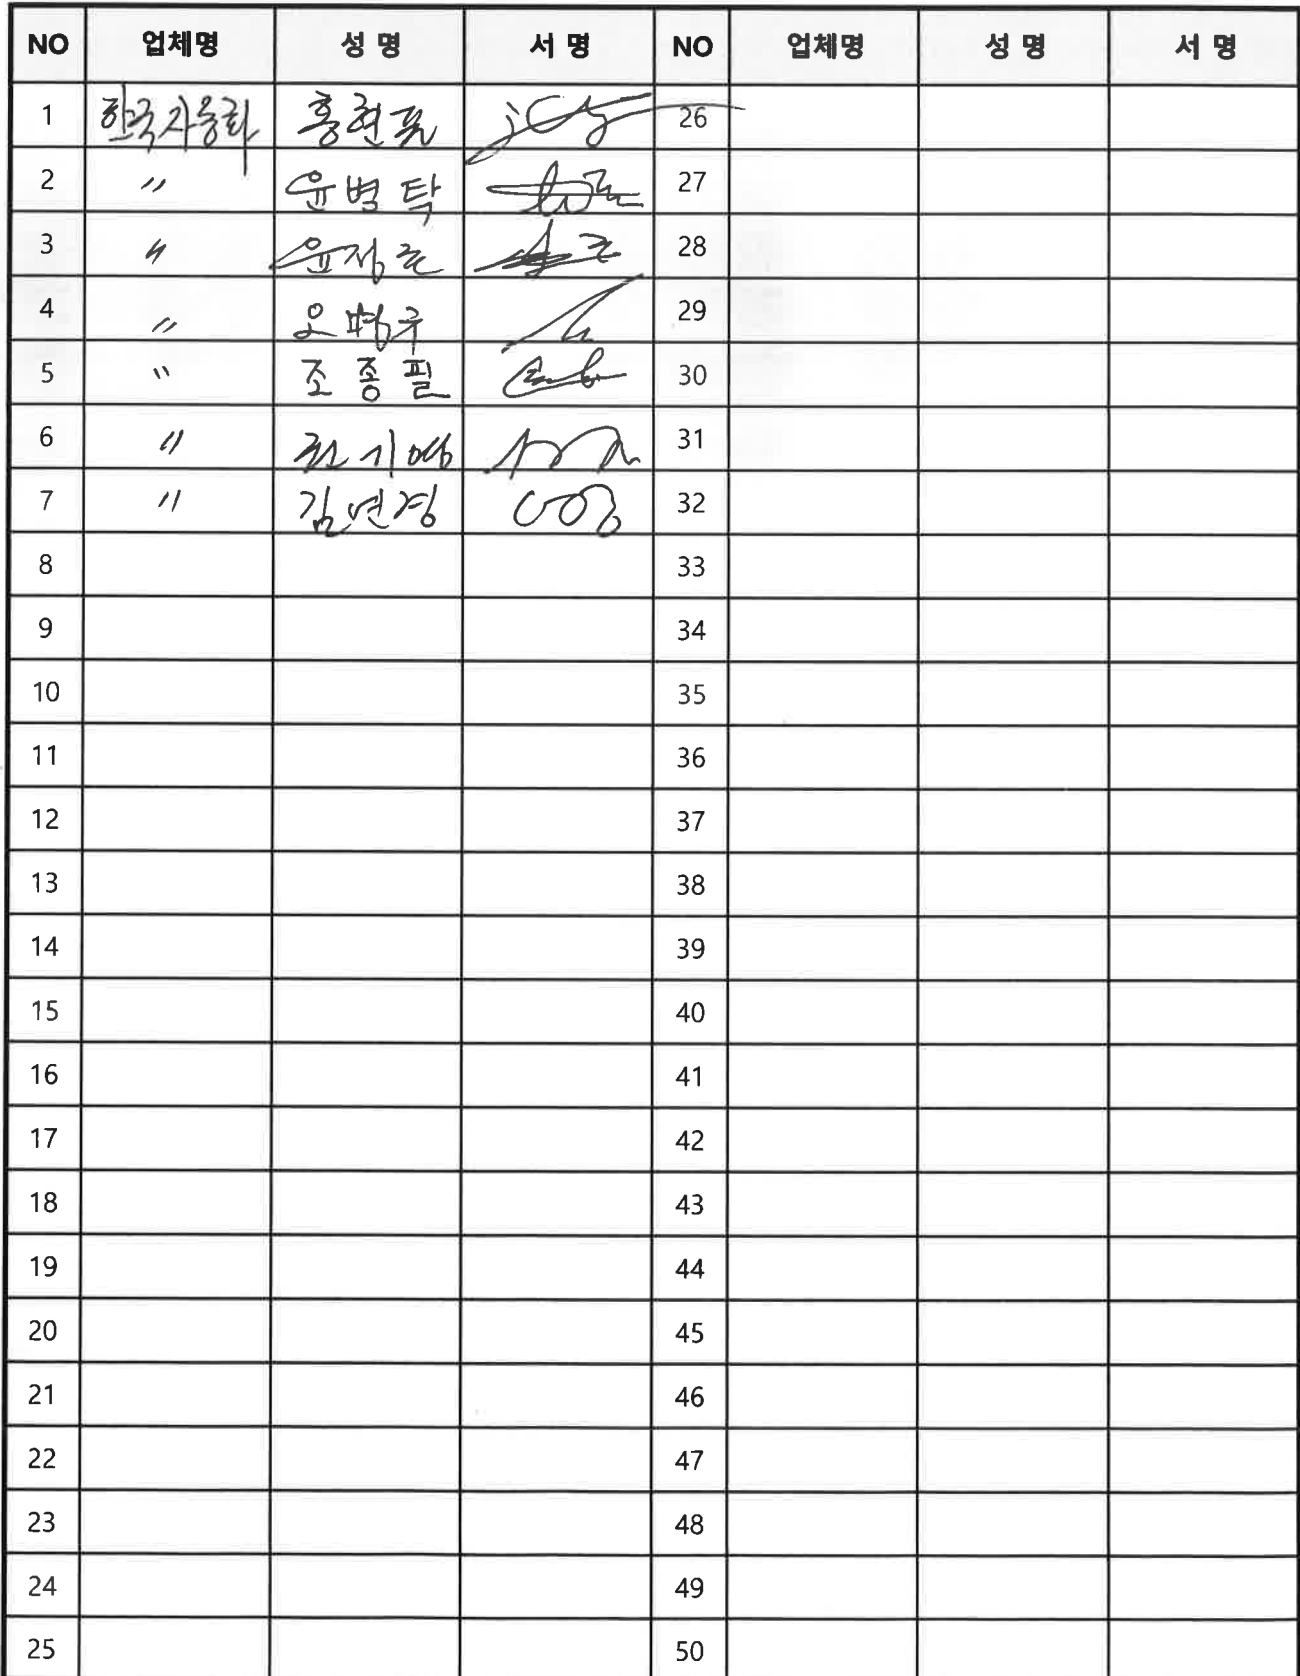 NO 업체명 성 명 서 명 NO 업체명 성 명 서 명
1 한국자동화 홍현표 26
2 〃 윤병탁 27
3 〃 28
4 〃 29
5 〃 조종필 30
6 〃 31
7 〃 김연경 32
8 33
9 34
10 35
11 36
12 37
13 38
14 39
15 40
16 41
17 42
18 43
19 44
20 45
21 46
22 47
23 48
24 49
25 50